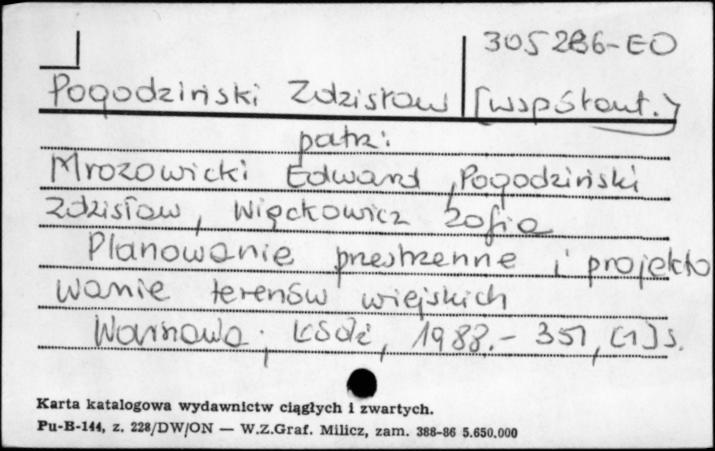 305286-EO
Pogodziński Zdzisław [współaut.]
patrz:
Mrozowicki Edward, Pogodziński
Zdzisław, Więckowicz Zofia
Planowanie przestrzenne i projekto
wanie terenów wiejskich
Warszawa; Łódź, 1988.- 351, [1] s.
Karta katalogowa wydawnictw ciągłych i zwartych.
Pu-B-144, z. 228/DW/ON — W.Z.Graf. Milicz, zam. 388-86 5.650.000